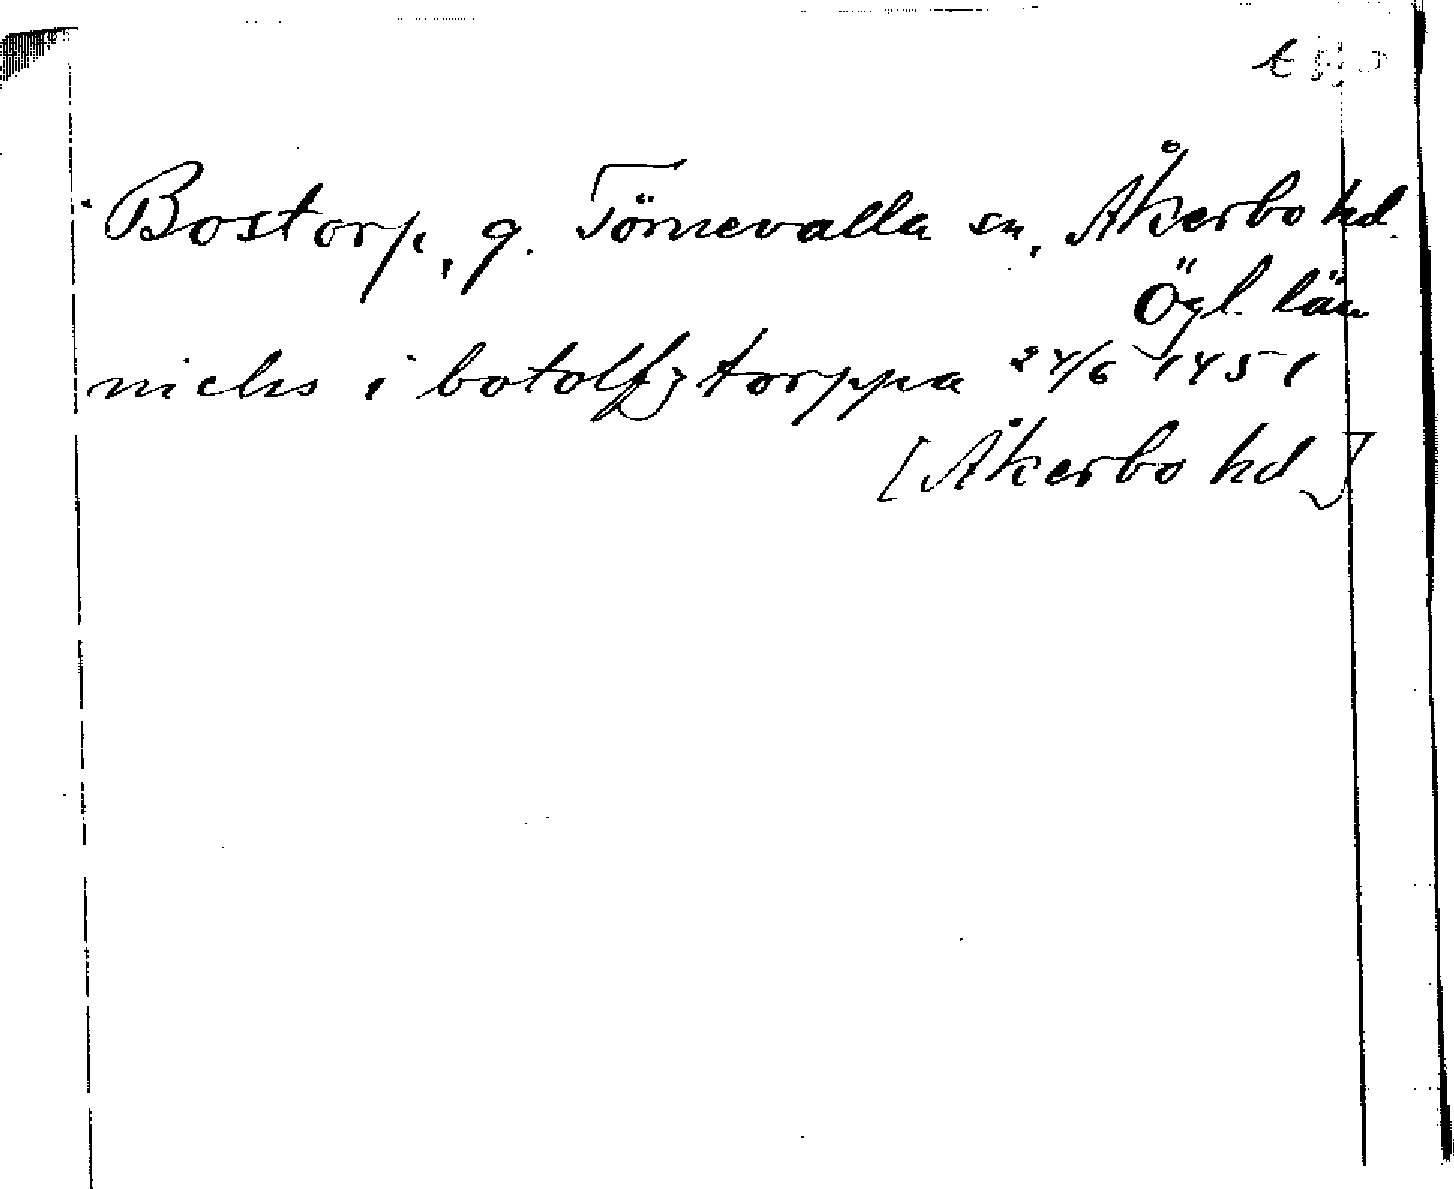 Bostorp, g. Törnevalla sn, Åkerbo hd.
Ögl. län
nichs i botolfz torppa 24/6 1451
[Åkerbo hd]